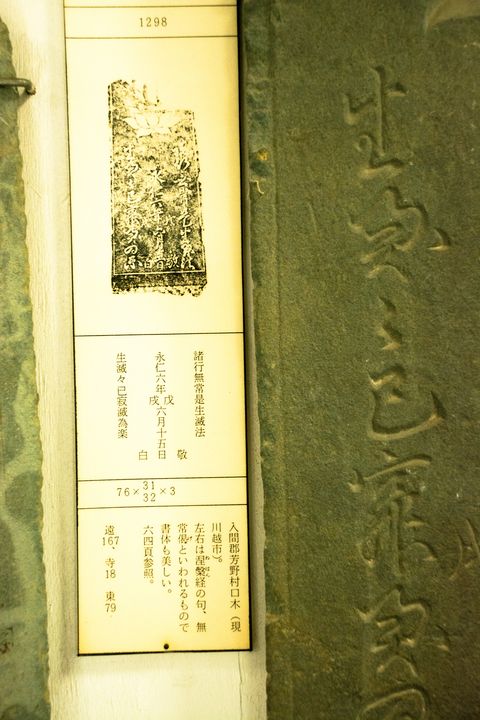 1298
諸行無常是生滅法
永仁六年戊戌六月十五日 敬白
生滅々已寂滅為楽
76×31/32×3
入間郡芳野村口木（現
川越市）。
左右は涅槃経の句、無
常偈といわれるもので
書体も美しい。
六四頁参照。
遠167、寺18 東79
生滅々已寂滅